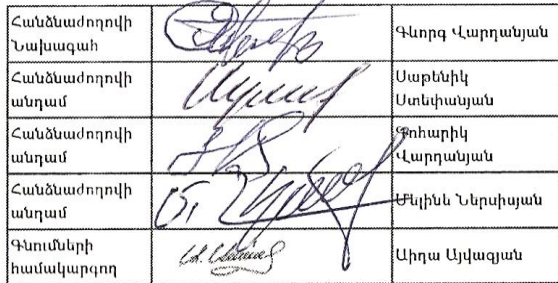 Հանձնաժողովի
Նախագահ
Գևորգ Վարդանյան
Հանձնաժողովի
անդամ
Սաթենիկ
Ստեփանյան
Հանձնաժողովի
անդամ
Գոհարիկ
Վարդանյան
Հանձնաժողովի
անդամ
Մելինե Ներսիսյան
Գնումների
համակարգող
Աիդա Այվազյան